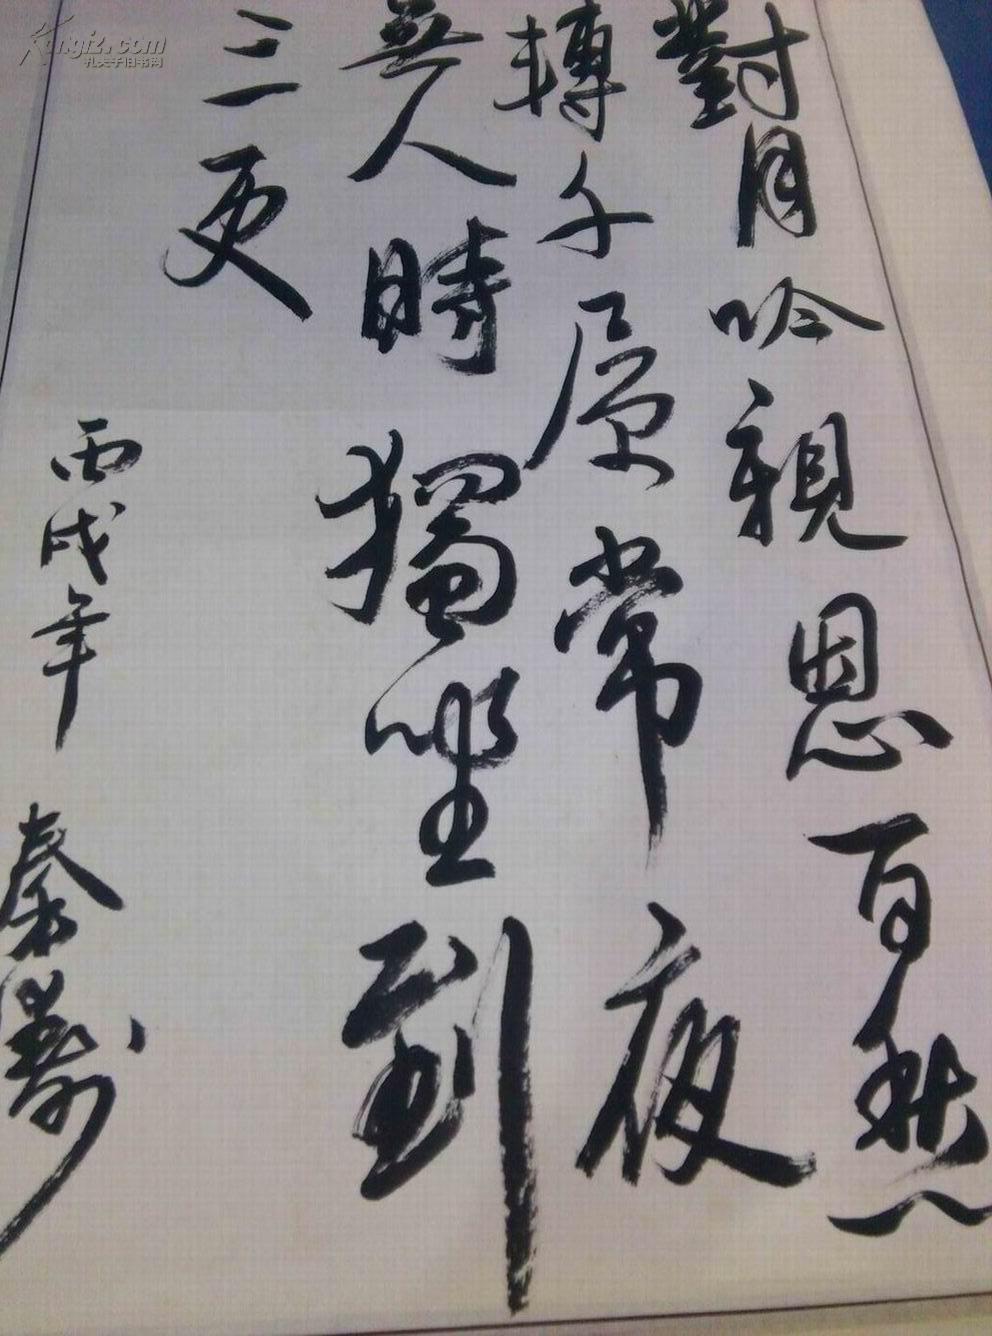 對月吟親恩百愁
轉千層常夜
無人時獨坐到
三更
丙戌年 秦
Kongfz.com
孔夫子旧书网